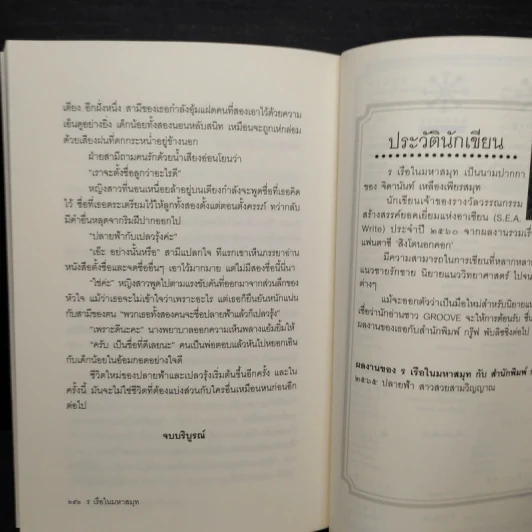 เตียง อีกฝั่งหนึ่ง สามีของเธอกำลังอุ้มแฝดคนที่สองเอาไว้ด้วยความ
เอ็นดูอย่างยิ่ง เด็กน้อยทั้งสองนอนหลับสนิท เหมือนจะถูกเห่กล่อม
ด้วยเสียงฝนที่ตกกระหน่ำอยู่ข้างนอก
ฝ่ายสามีถามคนรักด้วยน้ำเสียงอ่อนโยนว่า
“เราจะตั้งชื่อลูกว่าอะไรดี”
หญิงสาวที่นอนเหนื่อยล้าอยู่บนเตียงกำลังจะพูดชื่อที่เธอคิด
ไว้ ชื่อที่เธอตระเตรียมไว้ให้ลูกทั้งสองตั้งแต่ตอนตั้งครรภ์ ทว่ากลับ
มีคำอื่นหลุดจากริมฝีปากออกไป
“ปลายฟ้ากับเปลวรุ้งค่ะ”
“เอ๊ะ อย่างนั้นหรือ” สามีแปลกใจ ที่แรกเขาเห็นภรรยาอ่าน
หนังสือตั้งชื่อและจดชื่ออื่นๆ เอาไว้มากมาย แต่ไม่มีสองชื่อนี้นี่นา
“ใช่ค่ะ” หญิงสาวพูดไปตามแรงขับดันที่ออกมาจากส่วนลึกของ
หัวใจ แม้ว่าเธอจะไม่เข้าใจว่าเพราะอะไร แต่เธอก็ยืนยันหนักแน่น
กับสามีของตน “พวกเธอทั้งสองคนจะชื่อปลายฟ้าแล้วก็เปลวรุ้ง”
“เพราะดีนะคะ” นางพยาบาลออกความเห็นพลางแย้มยิ้มให้
“ครับ เป็นชื่อที่ดีเลยนะ” คนเป็นพ่อตอบแล้วหันไปหยอกเอิน
กับเด็กน้อยในอ้อมกอดอย่างใจดี
ชีวิตใหม่ของปลายฟ้าและเปลวรุ้งเริ่มต้นขึ้นอีกครั้ง และใน
ครั้งนี้ มันจะไม่ใช่ชีวิตที่ต้องแบ่งส่วนกับใครอื่นเหมือนหนก่อนอีก
ต่อไป
จบบริบูรณ์
๒๙๖ ร เรือในมหาสมุท
ประวัตินักเขียน
ร เรือในมหาสมุท เป็นนามปากกา
ของ จิดานันท์ เหลืองเพียรสมุท
นักเขียนเจ้าของรางวัลวรรณกรรม
สร้างสรรค์ยอดเยี่ยมแห่งอาเซียน (S.E.A.
Write) ประจำปี ๒๕๖๐ จากผลงานรวมเรื่
แฟนตาซี ‘สิงโตนอกคอก’
มีความสามารถในการเขียนที่หลากหลาย
แนวชายรักชาย นิยายแนววิทยาศาสตร์ ไปจน
ต่างๆ
แม้จะออกตัวว่าเป็นมือใหม่สำหรับนิยายแน
เชื่อว่านักอ่านชาว GROOVE จะให้การต้อนรับ ชื่น
ผลงานของเธอกับสำนักพิมพ์ กรู๊ฟ พับลิชชิ่งต่อไป
ผลงานของ ร เรือในมหาสมุท กับ สำนักพิมพ์
๒๕๖๕ ปลายฟ้า สาวสวยสามวิญญาณ